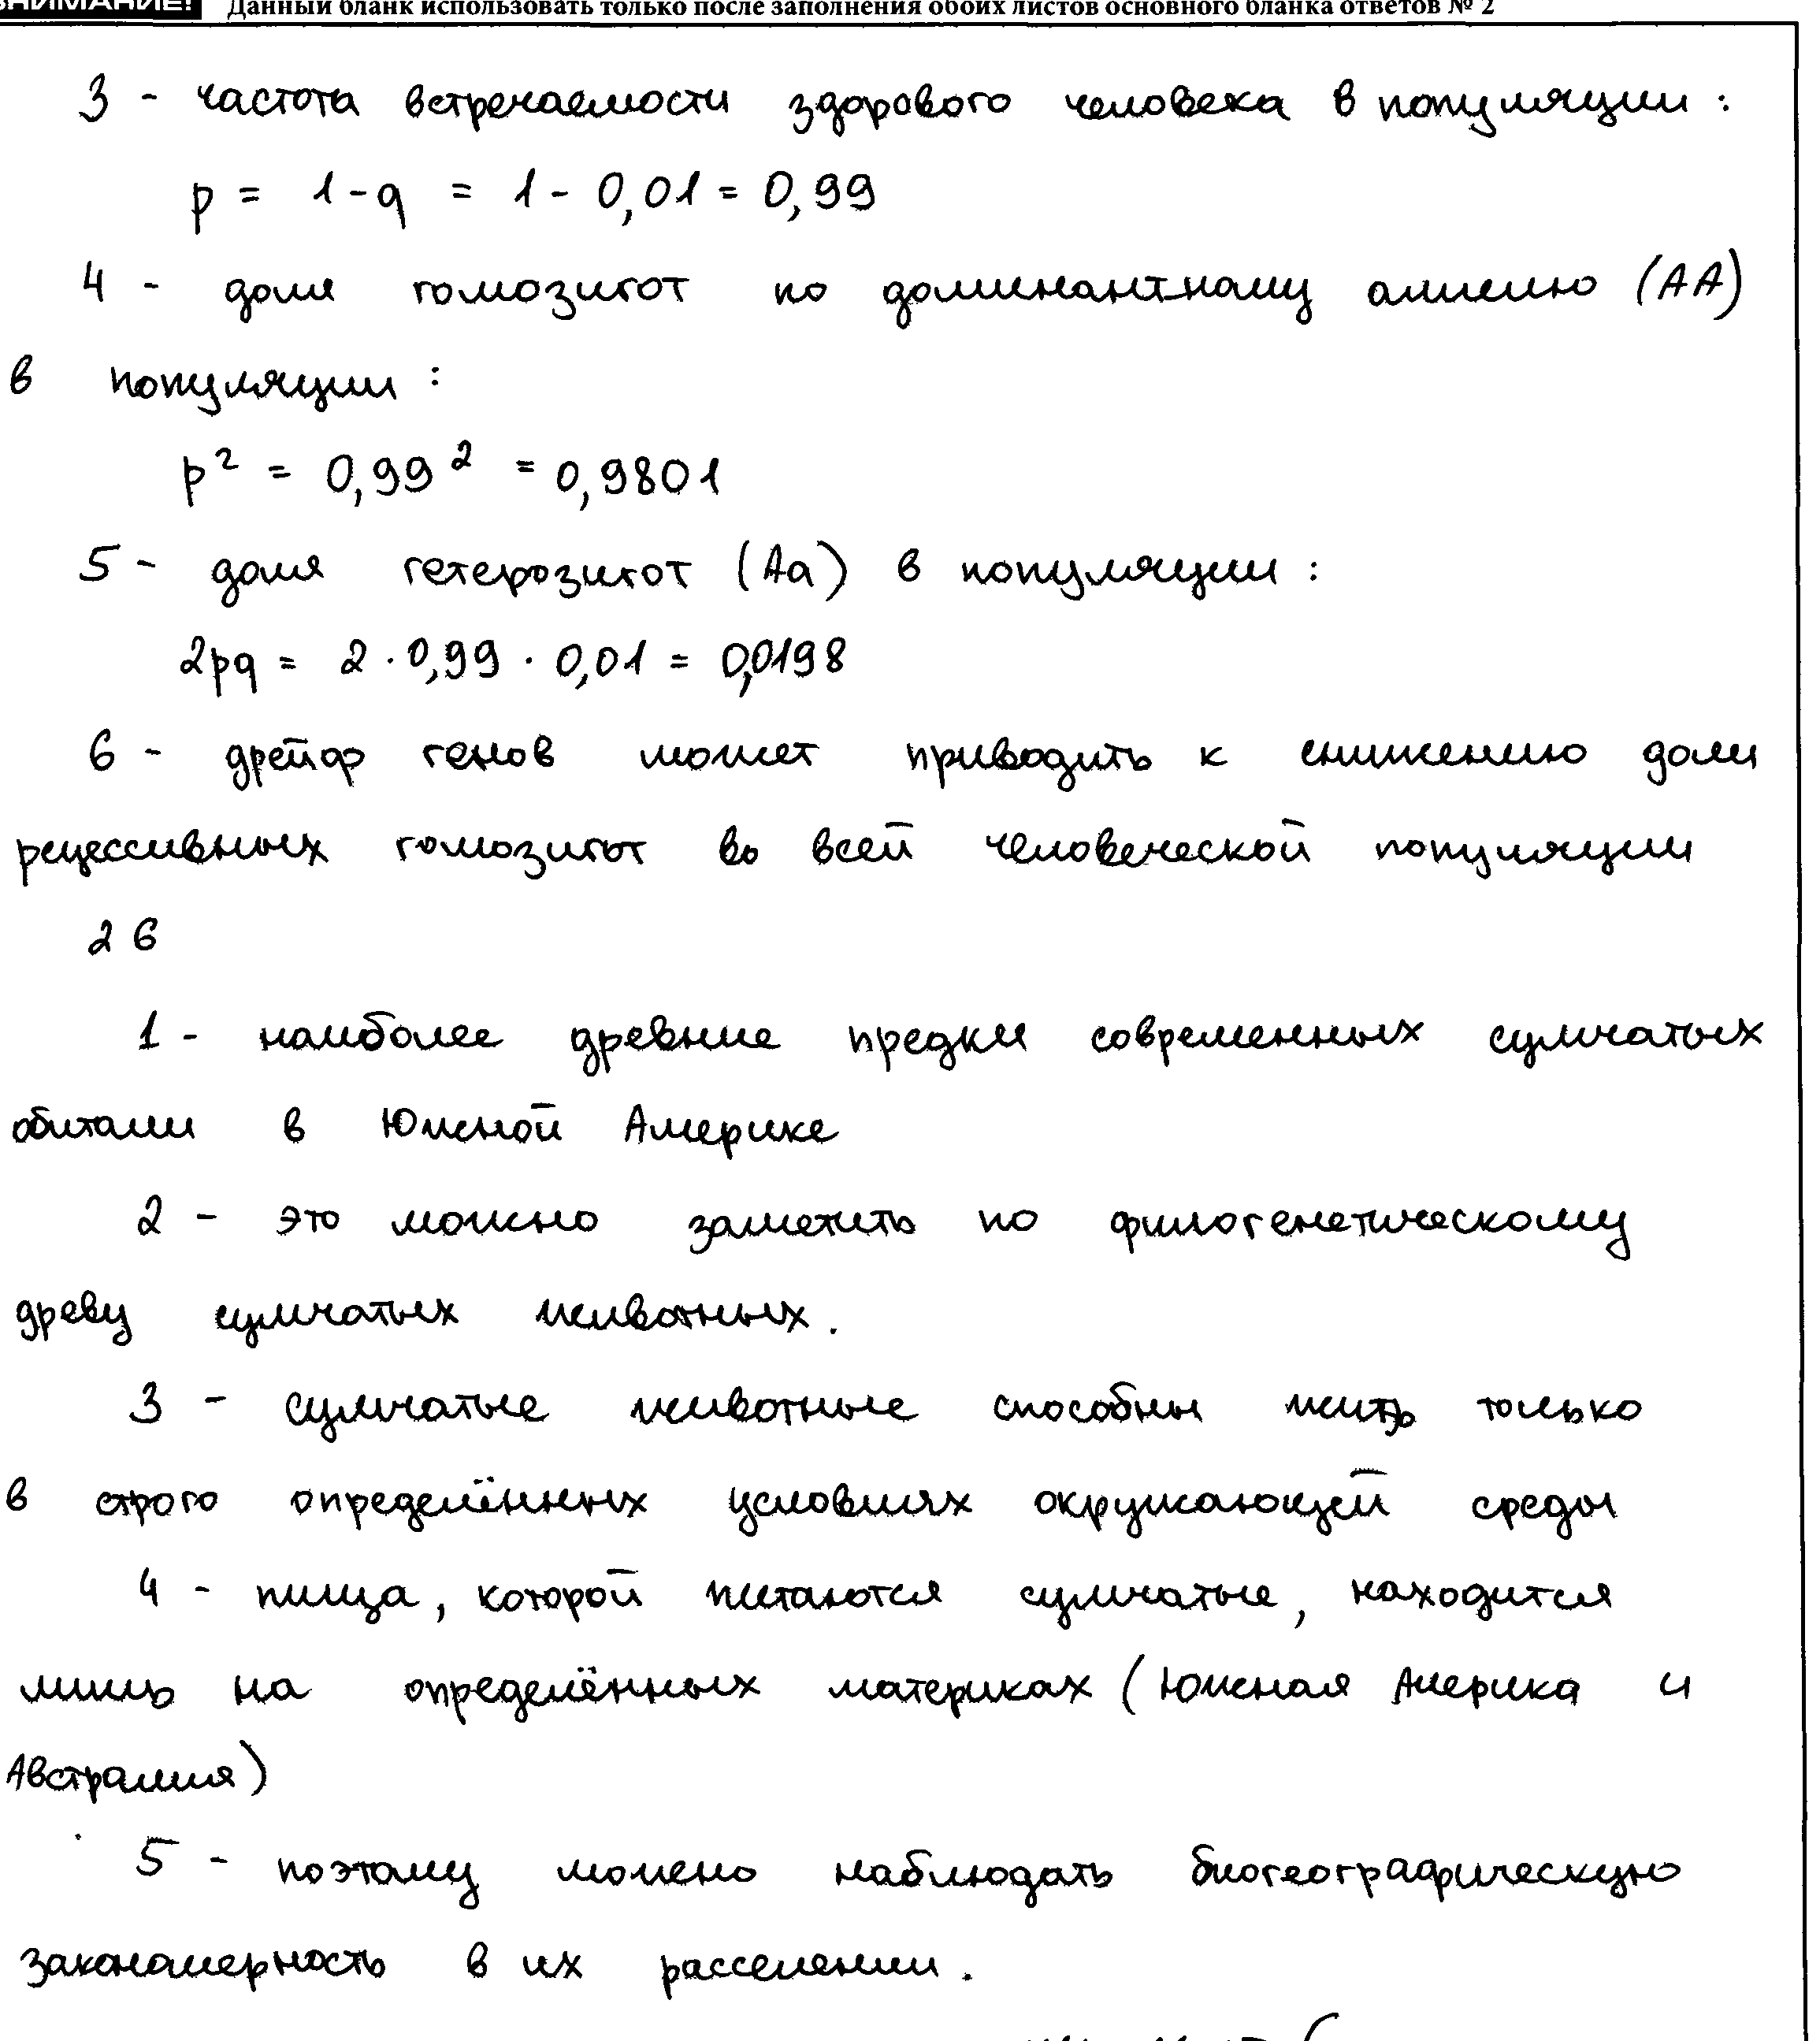 ВНИМАНИЕ! Данный бланк использовать только после заполнения обоих листов основного бланка ответов № 2
3 - частота встречаемости здорового человека в популяции :
p = 1 - q = 1 - 0,01 = 0,99
4 - доля гомозигот по доминантному аллелю (АА)
в популяции :
p² = 0,99² = 0,9801
5 - доля гетерозигот (Аа) в популяции :
2pq = 2 · 0,99 · 0,01 = 0,0198
6 - дрейф генов может приводить к снижению доли
рецессивных гомозигот во всей человеческой популяции
26
1 - наиболее древние предки современных сумчатых
обитали в Южной Америке
2 - это можно заметить по филогенетическому
древу сумчатых животных.
3 - сумчатые животные способны жить только
в строго определённых условиях окружающей среды
4 - пища, которой питаются сумчатые, находится
лишь на определённых материках (Южная Америка и
Австралия)
5 - поэтому можно наблюдать биогеографическую
закономерность в их расселении.